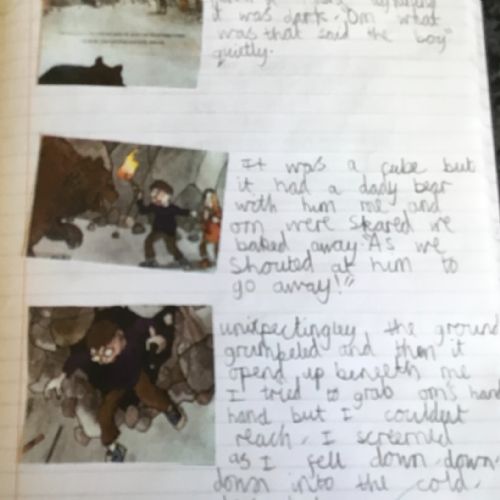 it was dark. Om what
was that said the boy"
quietly.
It was a cube but
it had a dady bear
with him me and
om were skared we
baked away. As we
Shouted at him to
go away!"
the ground
grumpeled and then it
opend up beneath me
I tried to grab om's hand
hand but I couldent
reach. I screemed
as I fell down, down,
down into the cold,